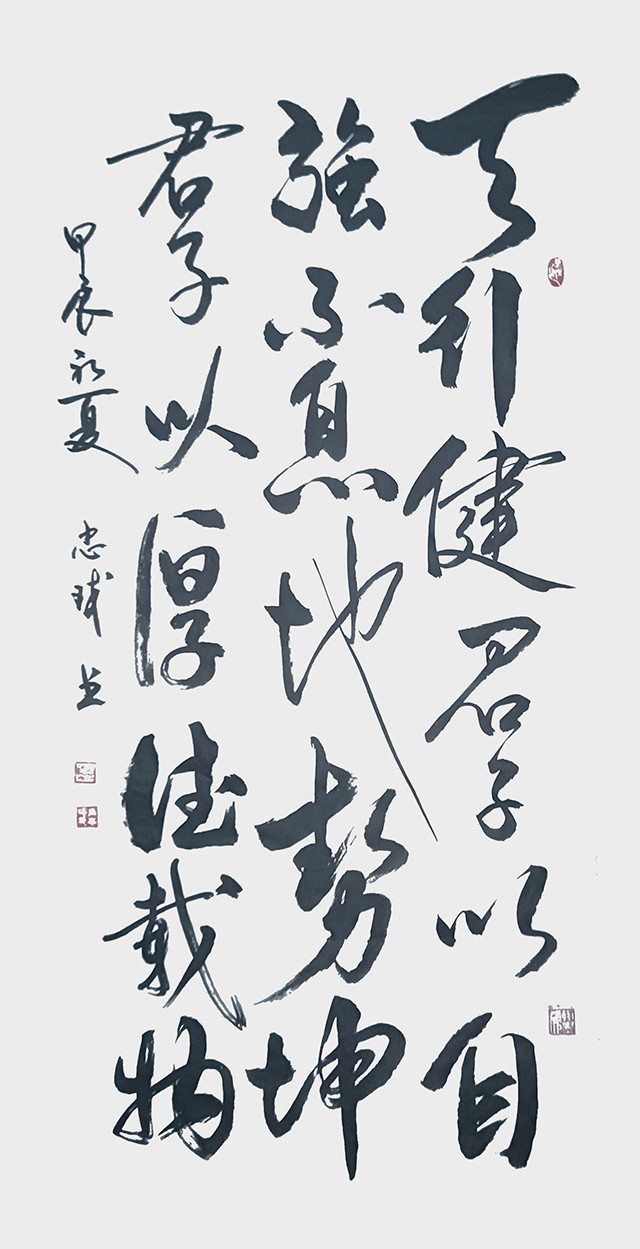 天行健君子以自
強不息地勢坤
君子以厚德載物
甲辰初夏
忠球书